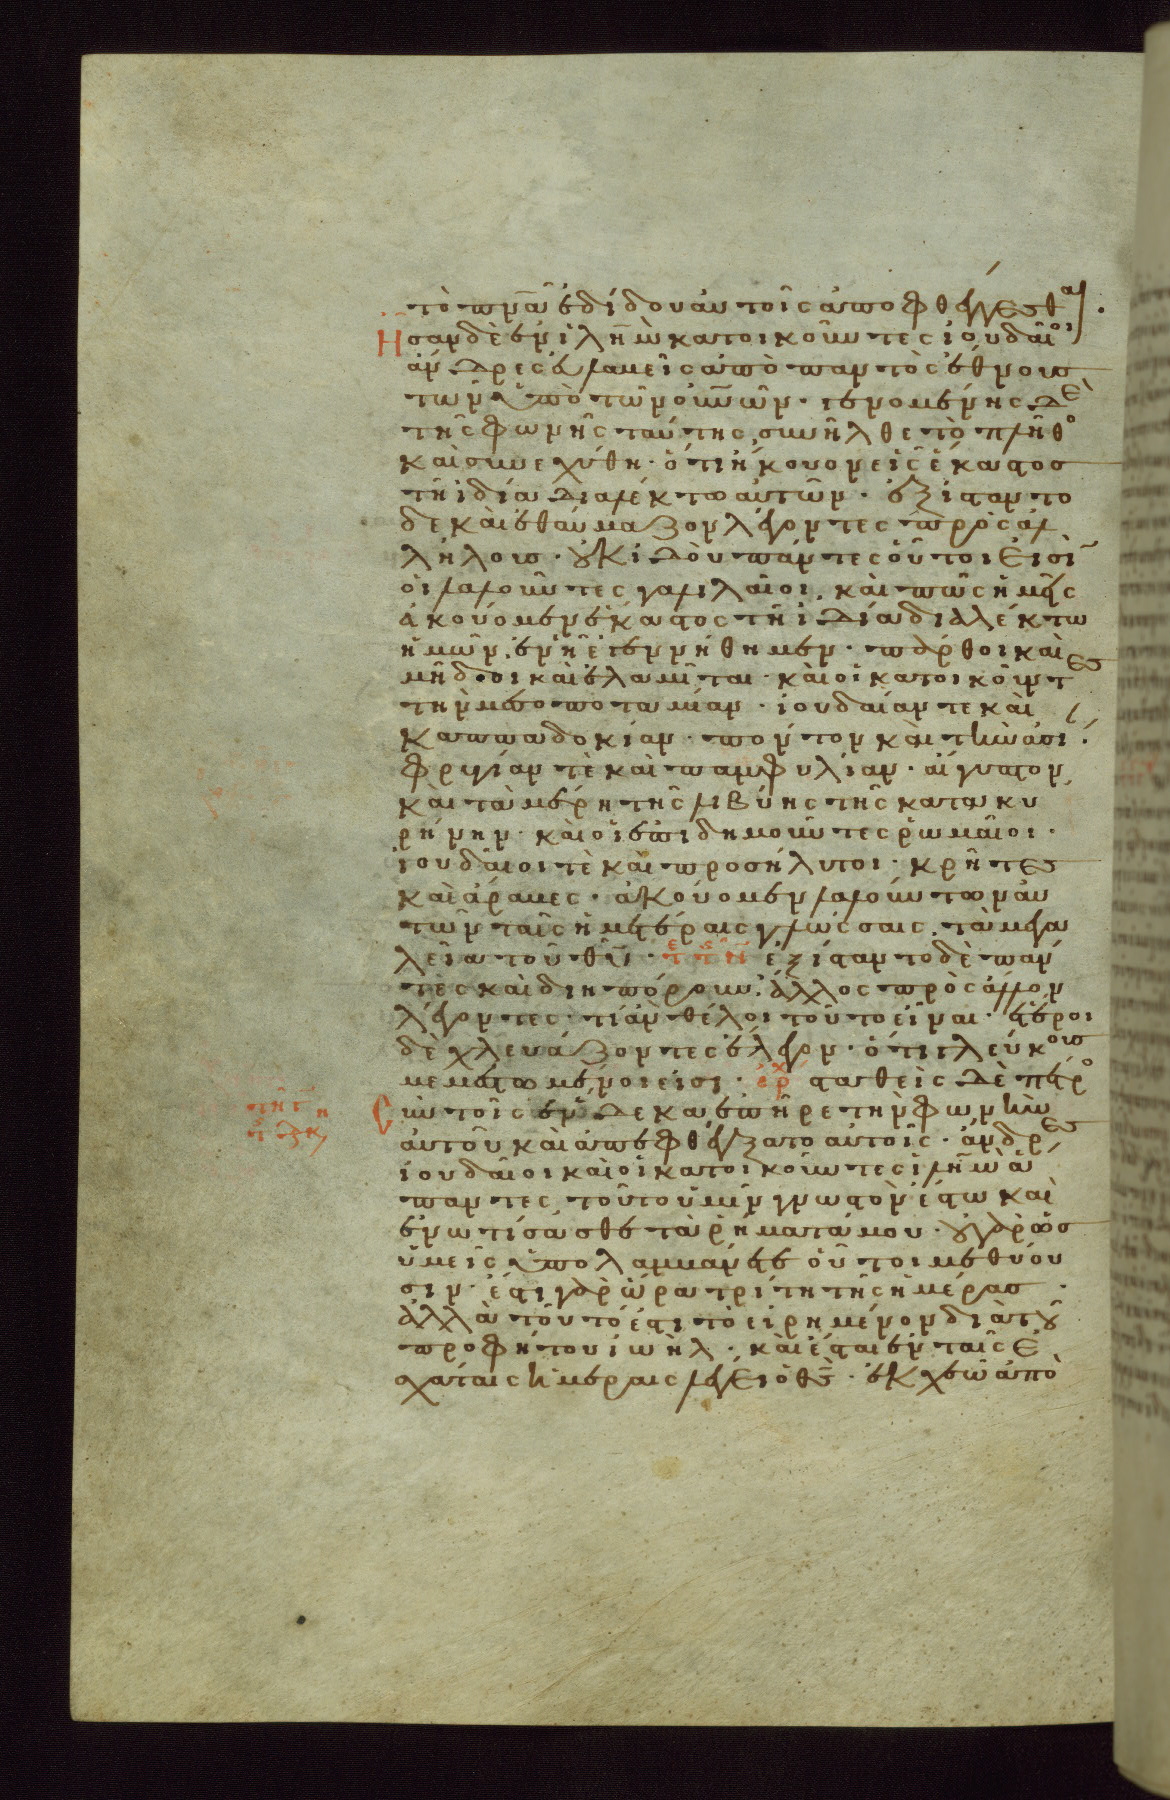 τὸ πνᾶ ἐδίδου αὐτοῖς ἀποφθέγγεσθαι.
Ἦσαν δὲ ἐν ἰλῆμ κατοικοῦντες ἰουδαῖοι
ἄνδρες εὐλαβεῖς ἀπὸ παντὸς ἔθνους
τῶν ὑπὸ τὸν οὐνὸν · γενομένης δὲ
τῆς φωνῆς ταύτης συνῆλθε τὸ πλῆθος
καὶ συνεχύθη · ὅτι ἤκουον εἷς ἕκαστος
τῆ ἰδία διαλέκτω αὐτῶν · ἐξίσταντο
δὲ καὶ ἐθαύμαζον λέγοντες πρὸς ἀλ
λήλους · οὐκ ἰδοὺ πάντες οὗτοι εἰσὶν
οἱ λαλοῦντες γαλιλαῖοι · καὶ πῶς ἡμεῖς
ἀκούομεν ἕκαστος τῆ ἰδία διαλέκτω
ἡμῶν ἐν ἧ ἐγεννήθημεν · πάρθοι καὶ
μῆδοι καὶ ἐλαμῖται · καὶ οἱ κατοικοῦντες
τὴν μεσοποταμίαν · ἰουδαίαν τε καὶ
καππαδοκίαν · πόντον καὶ τὴν ἀσίαν ·
φρυγίαν τὲ καὶ παμφυλίαν · αἴγυπτον
καὶ τὰ μέρη τῆς λιβύης τῆς κατὰ κυ
ρήνην · καὶ οἱ ἐπιδημοῦντες ῥωμαῖοι ·
ἰουδαῖοι τὲ καὶ προσήλυτοι · κρῆτες
καὶ ἄραβες · ἀκούομεν λαλούντων αὐ
τῶν ταῖς ἡμετέραις γλώσσαις τὰ μεγα
λεῖα τοῦ θῦ · ἐξίσταντο δὲ πάν
τες καὶ διηπόρουν · ἄλλος πρὸς ἄλλον
λέγοντες · τί ἂν θέλοι τοῦτο εἶναι · ἕτεροι
δὲ χλευάζοντες ἔλεγον · ὅτι γλεύκους
μεμεστωμένοι εἰσί · σταθεὶς δὲ πέτρος
σὺν τοῖς ἕνδεκα ἐπῆρε τὴν φωνὴν
αὐτοῦ καὶ ἀπεφθέγξατο αὐτοῖς · ἄνδρες
ἰουδαῖοι καὶ οἱ κατοικοῦντες ἰλῆμ ἅ
παντες τοῦτο ὑμῖν γνωστὸν ἔστω καὶ
ἐνωτίσασθε τὰ ῥήματά μου · οὐ γὰρ ὡς
ὑμεῖς ὑπολαμβάνετε οὗτοι μεθύου
σιν · ἔστι γὰρ ὥρα τρίτη τῆς ἡμέρας ·
ἀλλὰ τοῦτό ἐστι τὸ εἰρημένον διὰ τοῦ
προφήτου ἰωήλ · καὶ ἔσται ἐν ταῖς ἐ
σχάταις ἡμέραις λέγει ὁ θς · ἐκχεῶ ἀπὸ